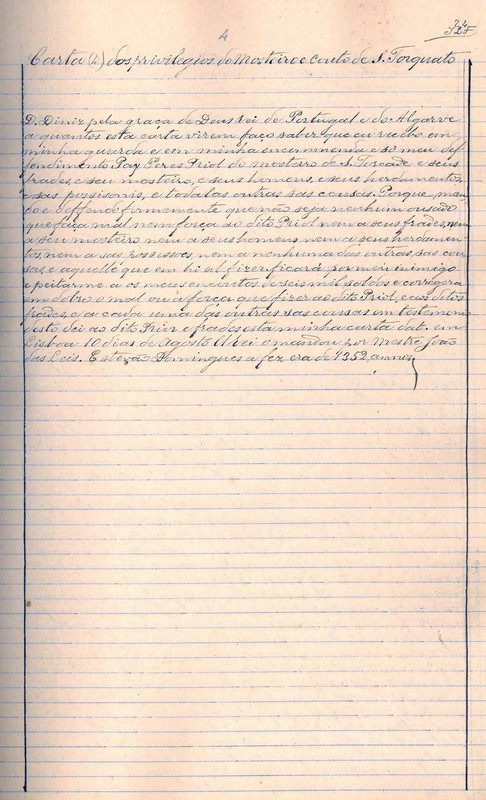 4
Carta (4) dos privilegios do Mosteiro e couto de S. Torquato
D. Diniz pela graça de Deus Rei de Portugal e do Algarve
a quantos esta carta virem faço saber que eu recebo em
minha guarda e em minha encommenda e so meu def-
fendimento Pay Peres Priol do mosteiro de S. Torcade e seus
frades, e seu mosteiro, e seus homens, e seus herdamentos,
e sas possisonis, e todalas outras sas cousas. Porque man-
do e deffendo firmemente que não seja nenhum ousado
que faça mal nem força ao dito Priol nem a seus frades, nem
a seu mosteiro nem a seus homens nem a seus herdamen-
tos, nem a sas possissoes, nem a nenhuma das outras sas cou-
sas e aquelle que em hi al fizer ficará por meu inimigo
e peitarme a os meus encoutos de seis mil soldos e corrigera
em dobro o mal ou a força que fizer ao dito Priol, e aos ditos
frades, e a cada uma das outras sas cousas em testemonio
desto dei ao dito Prior e frades esta minha carta dat. em
Lisboa 10 dias de Agosto El-rei o mandou por Mestre João
das Leis. Estevão Domingues a fez era de 1352 annos